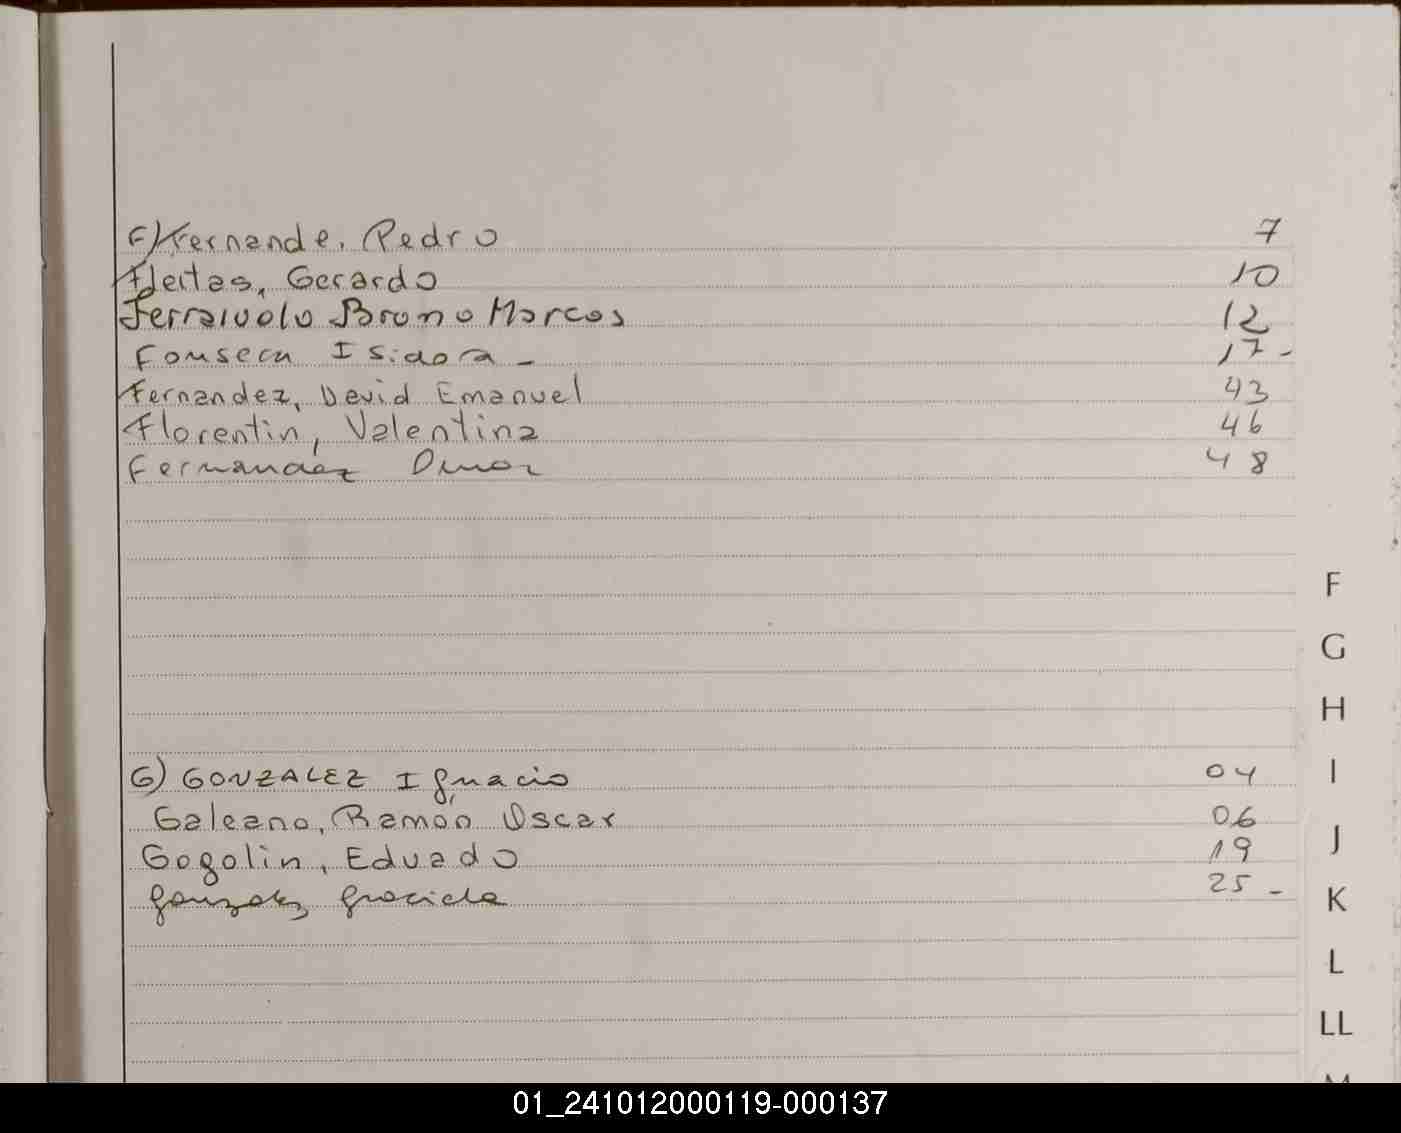 F) Fernande, Pedro 7
Fleitas, Gerardo 10
Ferraiuolo Bruno Marcos 12
Fonseca Isidora - 17-
Fernandez, David Emanuel 43
Florentin, Valentina 46
Fernandez Omar 48
F
G
H
G) GONZALEZ Ignacio 04 I
Galeano, Ramón Oscar 06
J
Gogolin, Eduado 19
Gonzalez Graciela 25 - K
L
LL
M
01_241012000119-000137